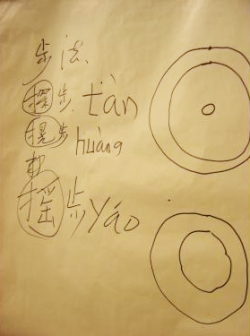 步法.
探步. tàn
步 huàng
摇步 yáo